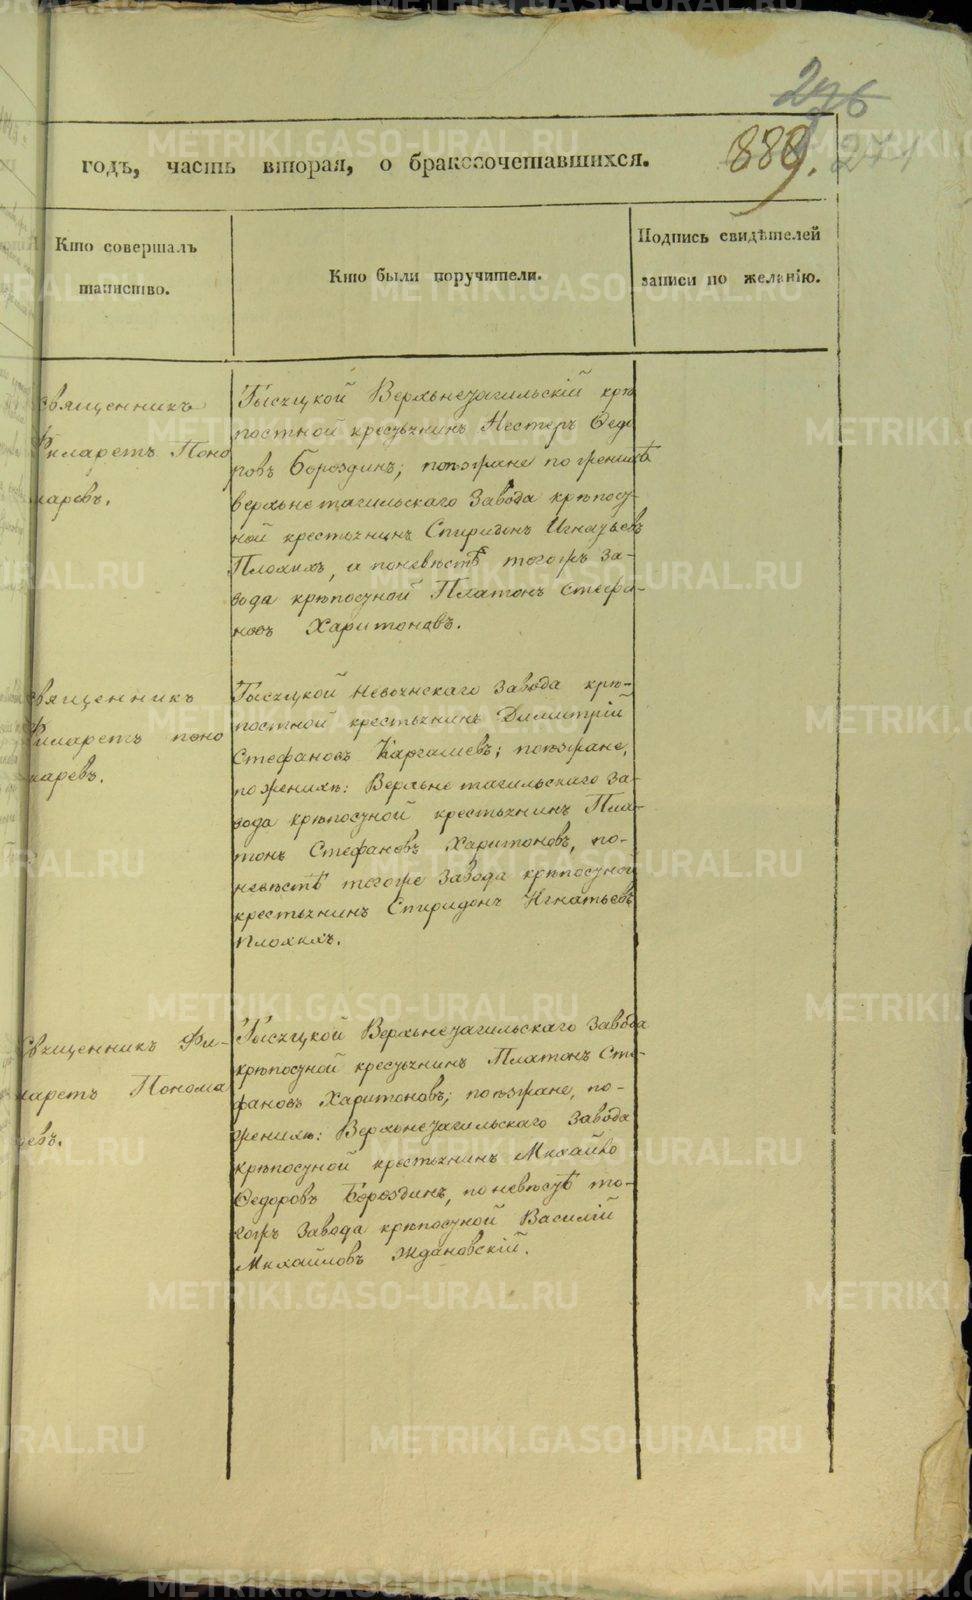 276
889.
годъ, часть вторая, о бракосочетавшихся.
Кто совершалъ
таинство.
Кто были поручители.
Подпись свидѣтелей
записи по желанію.
священникъ
Филаретъ Поно
маревъ.
Тысяцкой Верхьнетагильскій крѣ
постной крестьянинъ Нестеръ Ѳедо
ровъ Бороздинъ; поѣзжане по женихѣ
верхьнетагильскаго Завода крѣпост-
ной крестьянинъ Спиридонъ Игнатьевъ
Плохихъ, и поневѣстѣ тогожъ За-
вода крѣпостной Платонъ Стефа-
новъ Харитоновъ.
священникъ
Филаретъ поно
маревъ.
Тысяцкой Невьянскаго Завода крѣ-
постной крестьянинъ Димитрій
Стефановъ Каргашевъ; поѣзжане,
поженихѣ: Верхьнетагильскаго За-
вода крѣпостной крестьянинъ Пла-
тонъ Стефановъ Харитоновъ, по-
невѣстѣ тогоже Завода крѣпостной
крестьянинъ Спиридонъ Игнатьевъ
Плохихъ.
Священникъ Фи-
ларетъ Понома
ревъ.
Тысяцкой Верхьнетагильскаго Завода
крѣпостной крестьянинъ Платонъ Сте-
фановъ Харитоновъ; поѣзжане, по-
женихѣ: Верхьнетагильскаго Завода
крѣпостной крестьянинъ Михайло
Ѳедоровъ Бороздинъ, поневѣстѣ то-
гожъ Завода крѣпостной Василій
Михайловъ Ждановскій.
METRIKI.GASO-URAL.RU